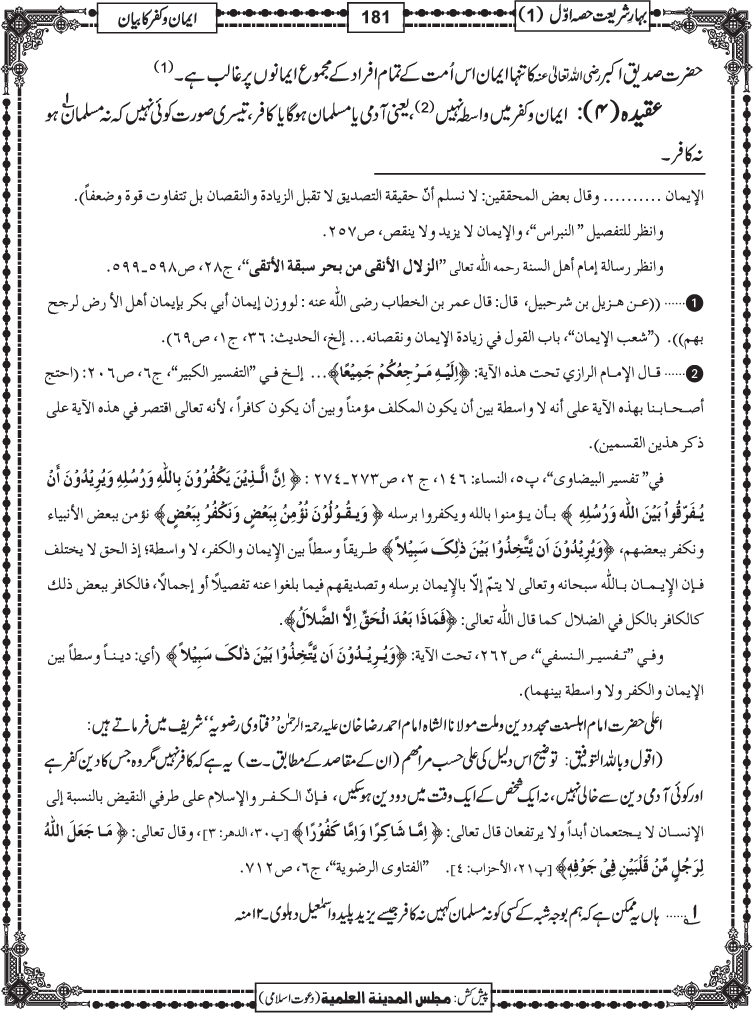 بہار شریعت حصہ اوّل (1)
181
ایمان و کفر کا بیان
حضرت صدیق اکبر رضی اللہ تعالیٰ عنہ کا تنہا ایمان اس اُمت کے تمام افراد کے مجموع ایمانوں پر غالب ہے۔ (1)
عقیدہ (۴): ایمان و کفر میں واسطہ نہیں (2)، یعنی آدمی یا مسلمان ہوگا یا کافر، تیسری صورت کوئی نہیں کہ نہ مسلمان ہو
نہ کافر۔
الإيمان .......... وقال بعض المحققين: لا نسلم أنّ حقيقة التصديق لا تقبل الزيادة والنقصان بل تتفاوت قوة وضعفاً).
وانظر للتفصيل ”النبراس“، والإيمان لا يزيد ولا ينقص، ص٢٥٧.
وانظر رسالة إمام أهل السنة رحمه الله تعالى ”الزلال الأنقى من بحر سبقة الأتقى“، ج٢٨، ص٥٩٨ـ٥٩٩.
1 ...... ((عن هزيل بن شرحبيل، قال: قال عمر بن الخطاب رضى الله عنه : لووزن إيمان أبي بكر بإيمان أهل الأرض لرجح
بهم)). (”شعب الإيمان“، باب القول في زيادة الإيمان ونقصانه... إلخ، الحديث: ٣٦، ج١، ص٦٩).
2 ...... قال الإمام الرازي تحت هذه الآية: ﴿اِلَيْهِ مَرْجِعُكُمْ جَمِيْعًا﴾... إلخ في ”التفسير الكبير“، ج٦، ص٢٠٦: (احتج
أصحابنا بهذه الآية على أنه لا واسطة بين أن يكون المكلف مؤمناً وبين أن يكون كافراً ، لأنه تعالى اقتصر في هذه الآية على
ذكر هذين القسمين).
في” تفسير البيضاوى“، پ٥، النساء: ١٤٦، ج ٢، ص٢٧٣ـ٢٧٤ : ﴿ اِنَّ الَّذِيْنَ يَكْفُرُوْنَ بِاللّٰهِ وَرُسُلِهِ وَيُرِيْدُوْنَ أَنْ
يُفَرِّقُوْا بَيْنَ اللّٰهِ وَرُسُلِهِ ﴾ بأن يؤمنوا بالله ويكفروا برسله ﴿ وَيَقُوْلُوْنَ نُؤْمِنُ بِبَعْضٍ وَنَكْفُرُ بِبَعْضٍ﴾ نؤمن ببعض الأنبياء
ونكفر ببعضهم، ﴿وَيُرِيْدُوْنَ اَن يَّتَّخِذُوْا بَيْنَ ذٰلِكَ سَبِيْلاً﴾ طريقاً وسطاً بين الإيمان والكفر، لا واسطة؛ إذ الحق لا يختلف
فإن الإيمان بالله سبحانه وتعالى لا يتمّ إلّا بالإيمان برسله وتصديقهم فيما بلغوا عنه تفصيلاً أو إجمالاً، فالكافر ببعض ذلك
كالكافر بالكل في الضلال كما قال الله تعالى: ﴿فَمَاذَا بَعْدَ الْحَقِّ اِلَّا الضَّلَالُ﴾.
وفي ”تفسير النسفي“، ص٢٦٢، تحت الآية: ﴿وَيُرِيْدُوْنَ اَن يَّتَّخِذُوْا بَيْنَ ذٰلِكَ سَبِيْلاً﴾ (أي: ديناً وسطاً بين
الإيمان والكفر ولا واسطة بينهما).
اعلی حضرت امام اہلسنت مجدد دین و ملت مولانا الشاہ امام احمد رضا خان علیہ رحمۃ الرحمٰن ”فتاوی رضویہ“ شریف میں فرماتے ہیں:
(اقول وباللہ التوفیق: توضیح اس دلیل کی علی حسب مرامھم (ان کے مقاصد کے مطابق۔ت) یہ ہے کہ کافر نہیں مگر وہ جس کا دین کفر ہے
اور کوئی آدمی دین سے خالی نہیں، نہ ایک شخص کے ایک وقت میں دو دین ہوسکیں، فإنّ الكفر والإسلام على طرفي النقيض بالنسبة إلى
الإنسان لا يجتمعان أبداً ولا يرتفعان قال تعالى: ﴿ اِمَّا شَاكِرًا وَاِمَّا كَفُوْرًا﴾ [پ٣٠، الدهر: ٣]، وقال تعالى: ﴿ مَا جَعَلَ اللّٰهُ
لِرَجُلٍ مِّنْ قَلْبَيْنِ فِىْ جَوْفِهِ﴾ [پ٢١، الأحزاب: ٤]. ”الفتاوى الرضوية“، ج٦، ص٧١٢.
۱ ...... ہاں یہ ممکن ہے کہ ہم بوجہ شبہ کے کسی کو نہ مسلمان کہیں نہ کافر جیسے یزید پلید و اسمٰعیل دہلوی۔۱۲منہ
پیش کش: مجلس المدینة العلمیة (دعوت اسلامی)